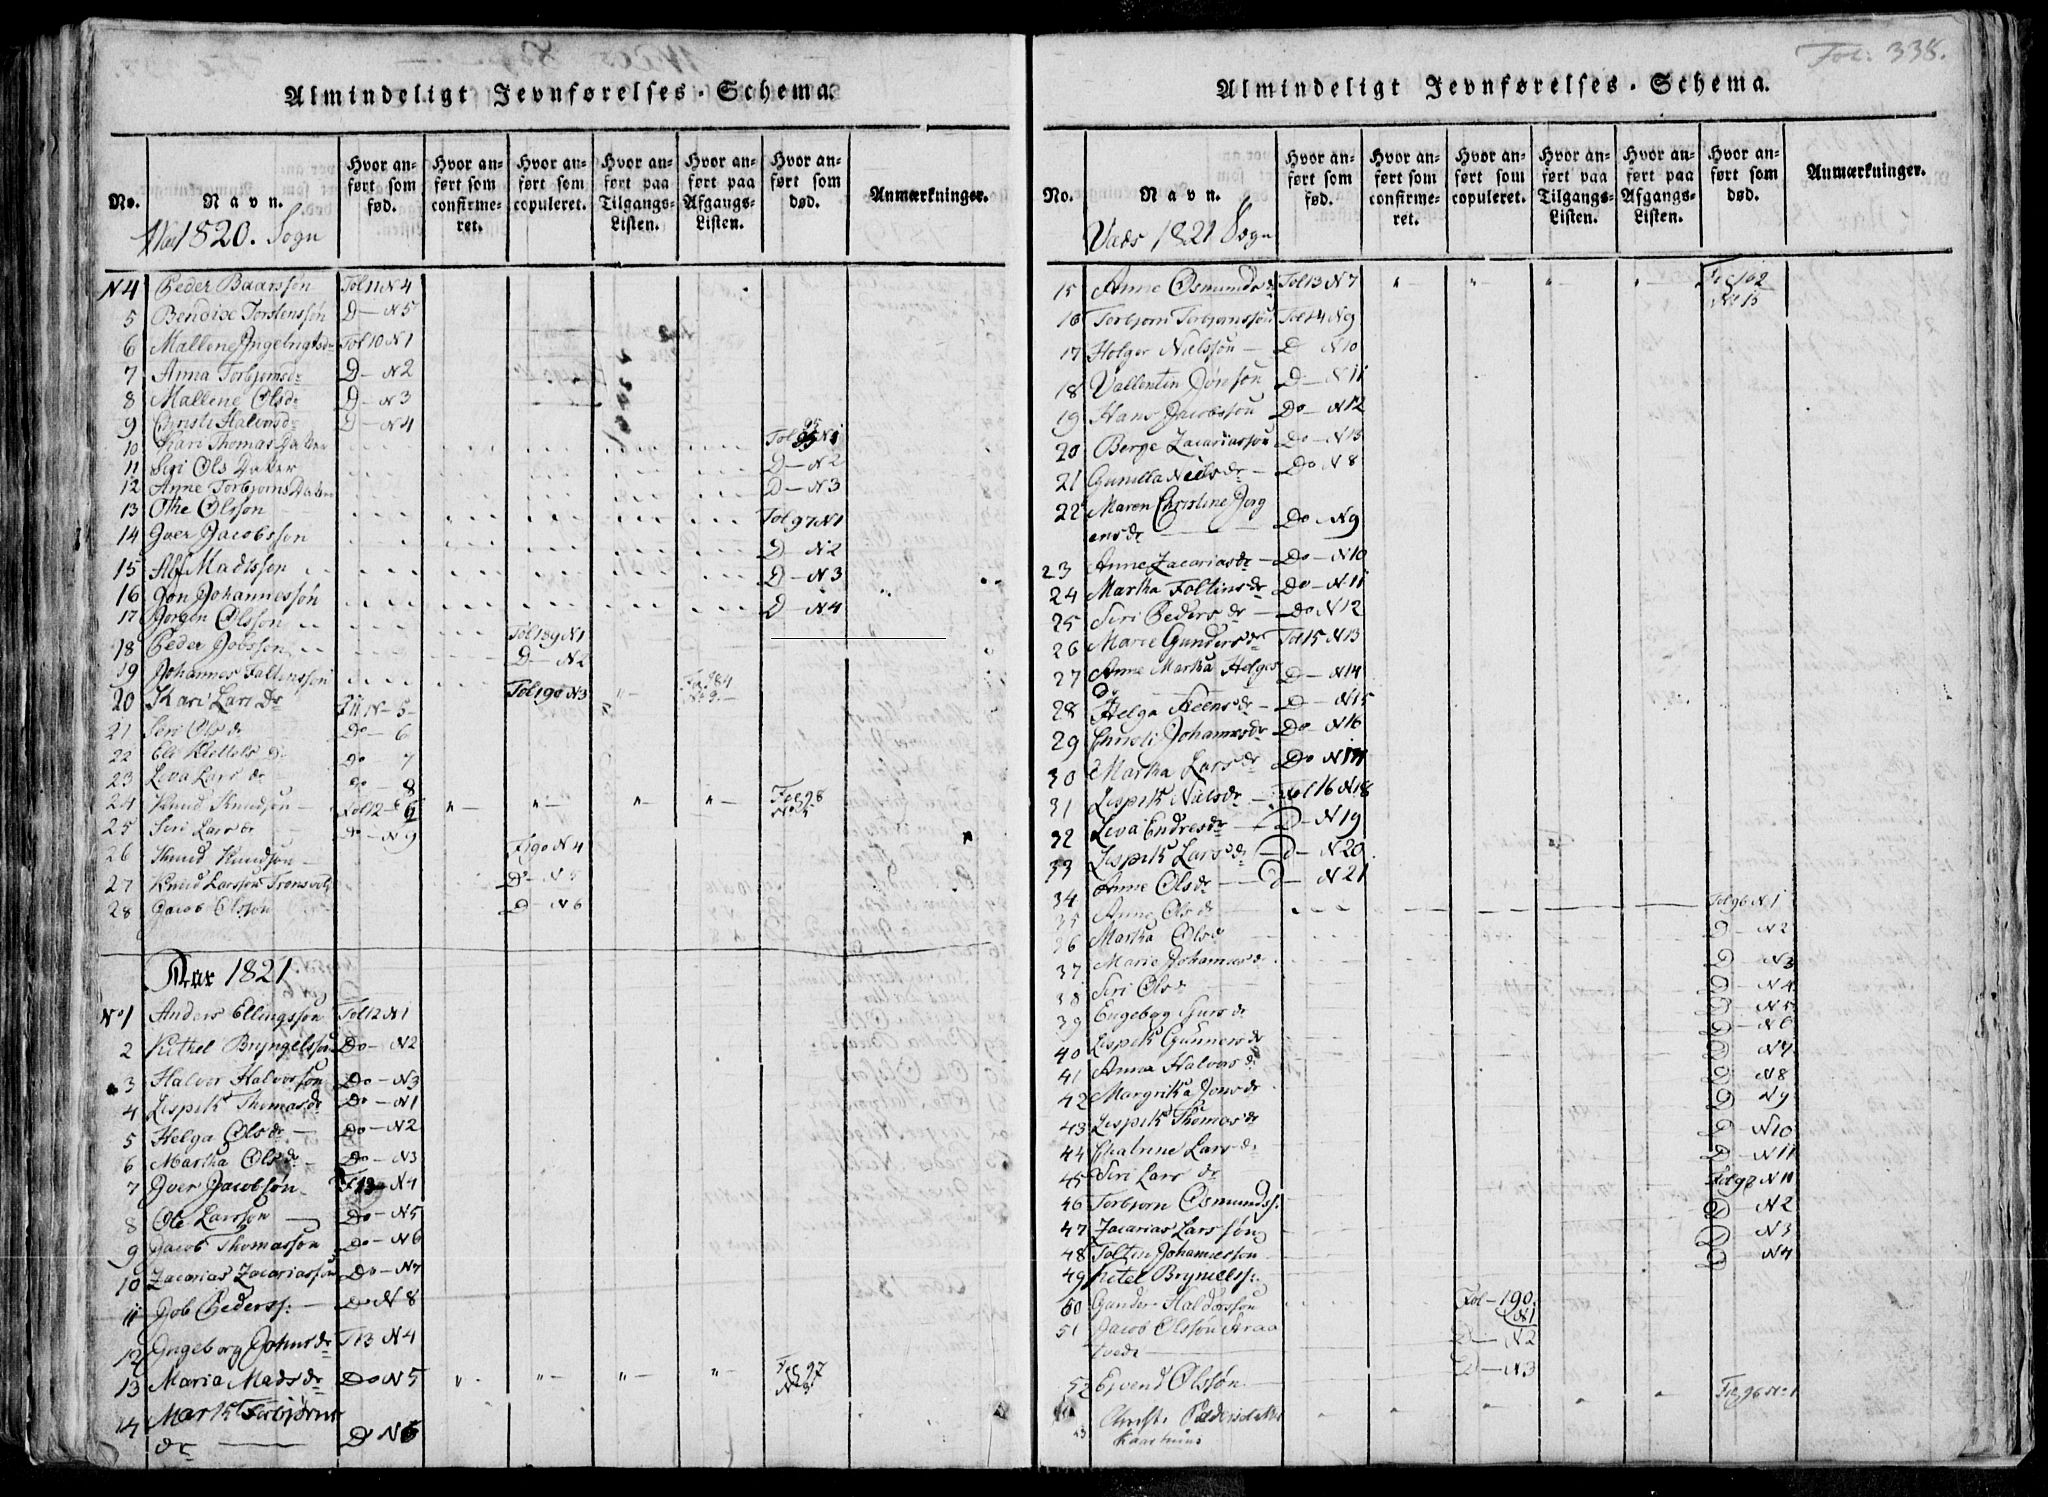 Almindeligt Jevnførelses-Schema.
No.
Navn.
Hvor anført som fød.
Hvor anført som confirmeret.
Hvor anført som copuleret.
Hvor anført paa Tilgangs-Listen.
Hvor anført paa Afgangs-Listen.
Hvor anført som død.
Anmærkninger.
1820. Sogn
N4 Peder Baarsøn Fol 11 N4
5 Bendixe Torstensøn D— N5
6 Mallene Fol 10 N1
7 Anna Torbjørnsdr D— N2
8 Mallene Olsdr D— N3
9 Christi Halvorsdr D— N4
10 Kari Thomas Datter N1
11 Siri Ols Datter D— N2
12 Anne Torbjørns Datter D— N3
13 Othe Olssøn Fol 97 N1
14 Iver Jacobssøn D N2
15 Madssøn D— N3
16 Jon Johannessøn D N4
17 Jørgen Olssøn Fol 189 N1
18 Peder Jobssøn D— N2
19 Johannes Faltinssøn Fol 190 N3
20 Kari Lars Dr F 11 N—5—
21 Siri Ols dr Do— 6
22 Eli dr Do— 7
23 Leva Lars dr do— 8
24 Knud Knudsøn— Fol 12— Fol 98
25 Siri Lars dr do— N9
26 Knud Knudsøn— F 190 N4
27 Knud Larssøn D— N5
28 Jacob Olssøn D— N6
Aar 1821
No 1 Anders Ellingssøn Fol 12 N1
2 Kithel Bryngelssøn Do— N2
3 Halvor Halvorssøn Do— N3
4 Lispeth Thomasdr Do— N1
5 Helga Olsdr— Do— N2
6 Martha Olsdr Do— N3
7 Iver Jacobsøn F 13— N4
8 Ole Larssøn— Do— N5
9 Jacob Thomassøn Do— N6
10 Zacarias Zacariassøn Do— N7
11 Job Pederss:— Do N8
12 Ingeborg Johnsdr F 13 N4
13 Maria Madsdr Do N5 Fol 97
14 Torbjørns
dr— D N6
Fol: 338.
Almindeligt Jevnførelses-Schema.
No.
Navn.
Hvor anført som fød.
Hvor anført som confirmeret.
Hvor anført som copuleret.
Hvor anført paa Tilgangs-Listen.
Hvor anført paa Afgangs-Listen.
Hvor anført som død.
Anmærkninger.
Vads 1821 Sogn
15 Anne Osmundsdr Fol 13 N7
16 Torbjørn Torbjørnssøn Fol 14 N9
17 Holger Nielssøn— D N10
18 Vallentin D— N11
19 Hans Jacobssøn Do— N12
20 Berge Zacariassøn Do— N13
21 Gunilla Nielsdr— Do N8
22 Maren Christine Jørg
ensdr— Do N9
23 Anne Zacariasdr— Do— N10
24 Martha Foltinsdr Do— N11
25 Siri Pedersdr— Do N12
26 Marie Gundersdr Fol 15 N13
27 Anne Martha Helges
D— N14
28 Helga D— N15
29 Christi Johannesdr Do N16
30 Martha Larsdr Do N17
31 Lispeth Nielsdr— Fol 16 N18
32 Leva Endresdr— D— N19
33 Lispeth Larsdr— D— N20
34 Anne Olsdr— D— N21
35 Anne Olsdr Fol 96 N1
36 Martha Olsdr D N2
37 Marie Johannesdr D N3
38 Siri Olsdr D N4
39 Engeborg dr D N5
40 Lispeth Gunnersdr D N6
41 Anna Halvorsdr D N7
42 Margritha Jonsdr D N8
43 Lispeth Thomasdr D N9
44 Chatrine Larsdr D N10
45 Siri Lars dr D— N11
46 Torbjørn Osmundss: Fol 97 N1
47 Zacarias Larssøn D— N2
48 Foltin Johannessøn D N3
49 Kitel Brynielss: D N4
50 Gunder Haldorssøn Fol—190 N1
51 Jacob Olssøn
tvedt— D— N2
52 Eyvend Olssøn— D— N3
53 Christi Fol 96 No 1